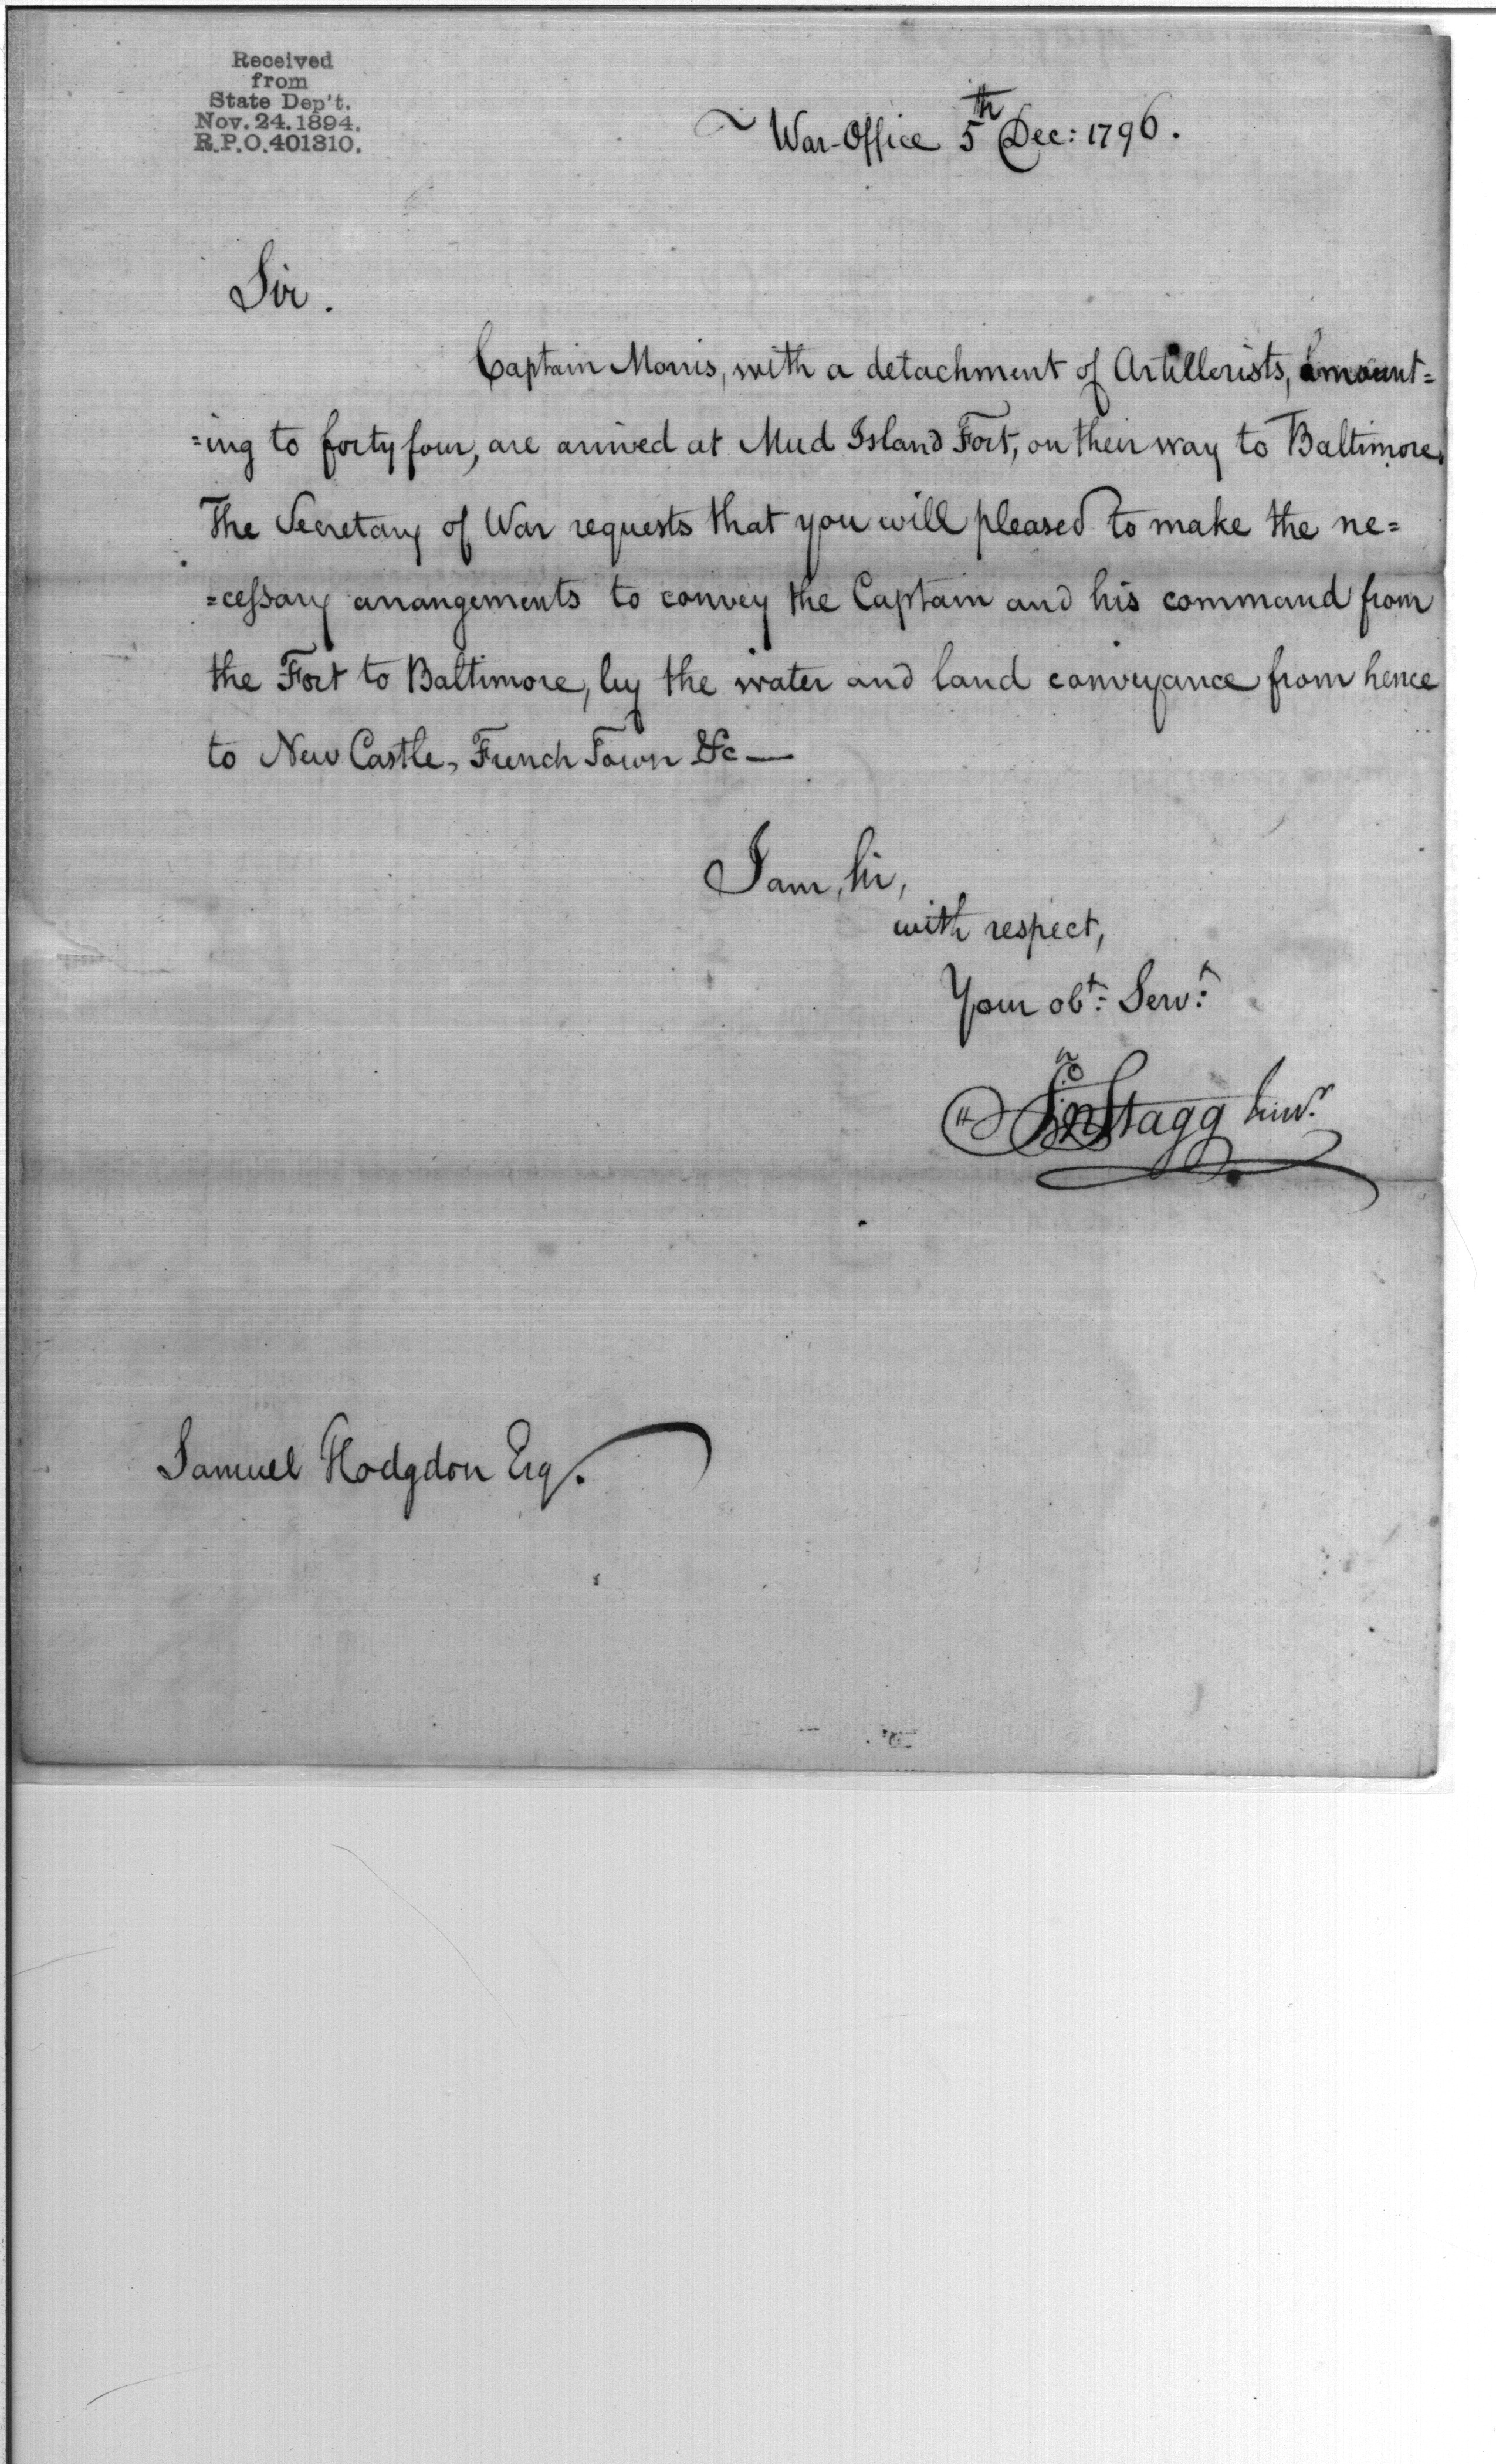 Received
from
State Dep't.
Nov. 24. 1894.
R.P.O. 401310.
War-Office 5th Dec: 1796.
Sir.
Captain Morris, with a detachment of Artillerists, amount=
=ing to forty four, are arrived at Mud Island Fort, on their way to Baltimore.
The Secretary of War requests that you will pleased to make the ne=
=cessary arrangements to convey the Captain and his command from
the Fort to Baltimore, by the water and land conveyance from hence
to New Castle, French Town &c —
I am, Sir,
with respect,
Your obt: Servt:
Jno Stagg Junr.
Samuel Hodgdon Esq.